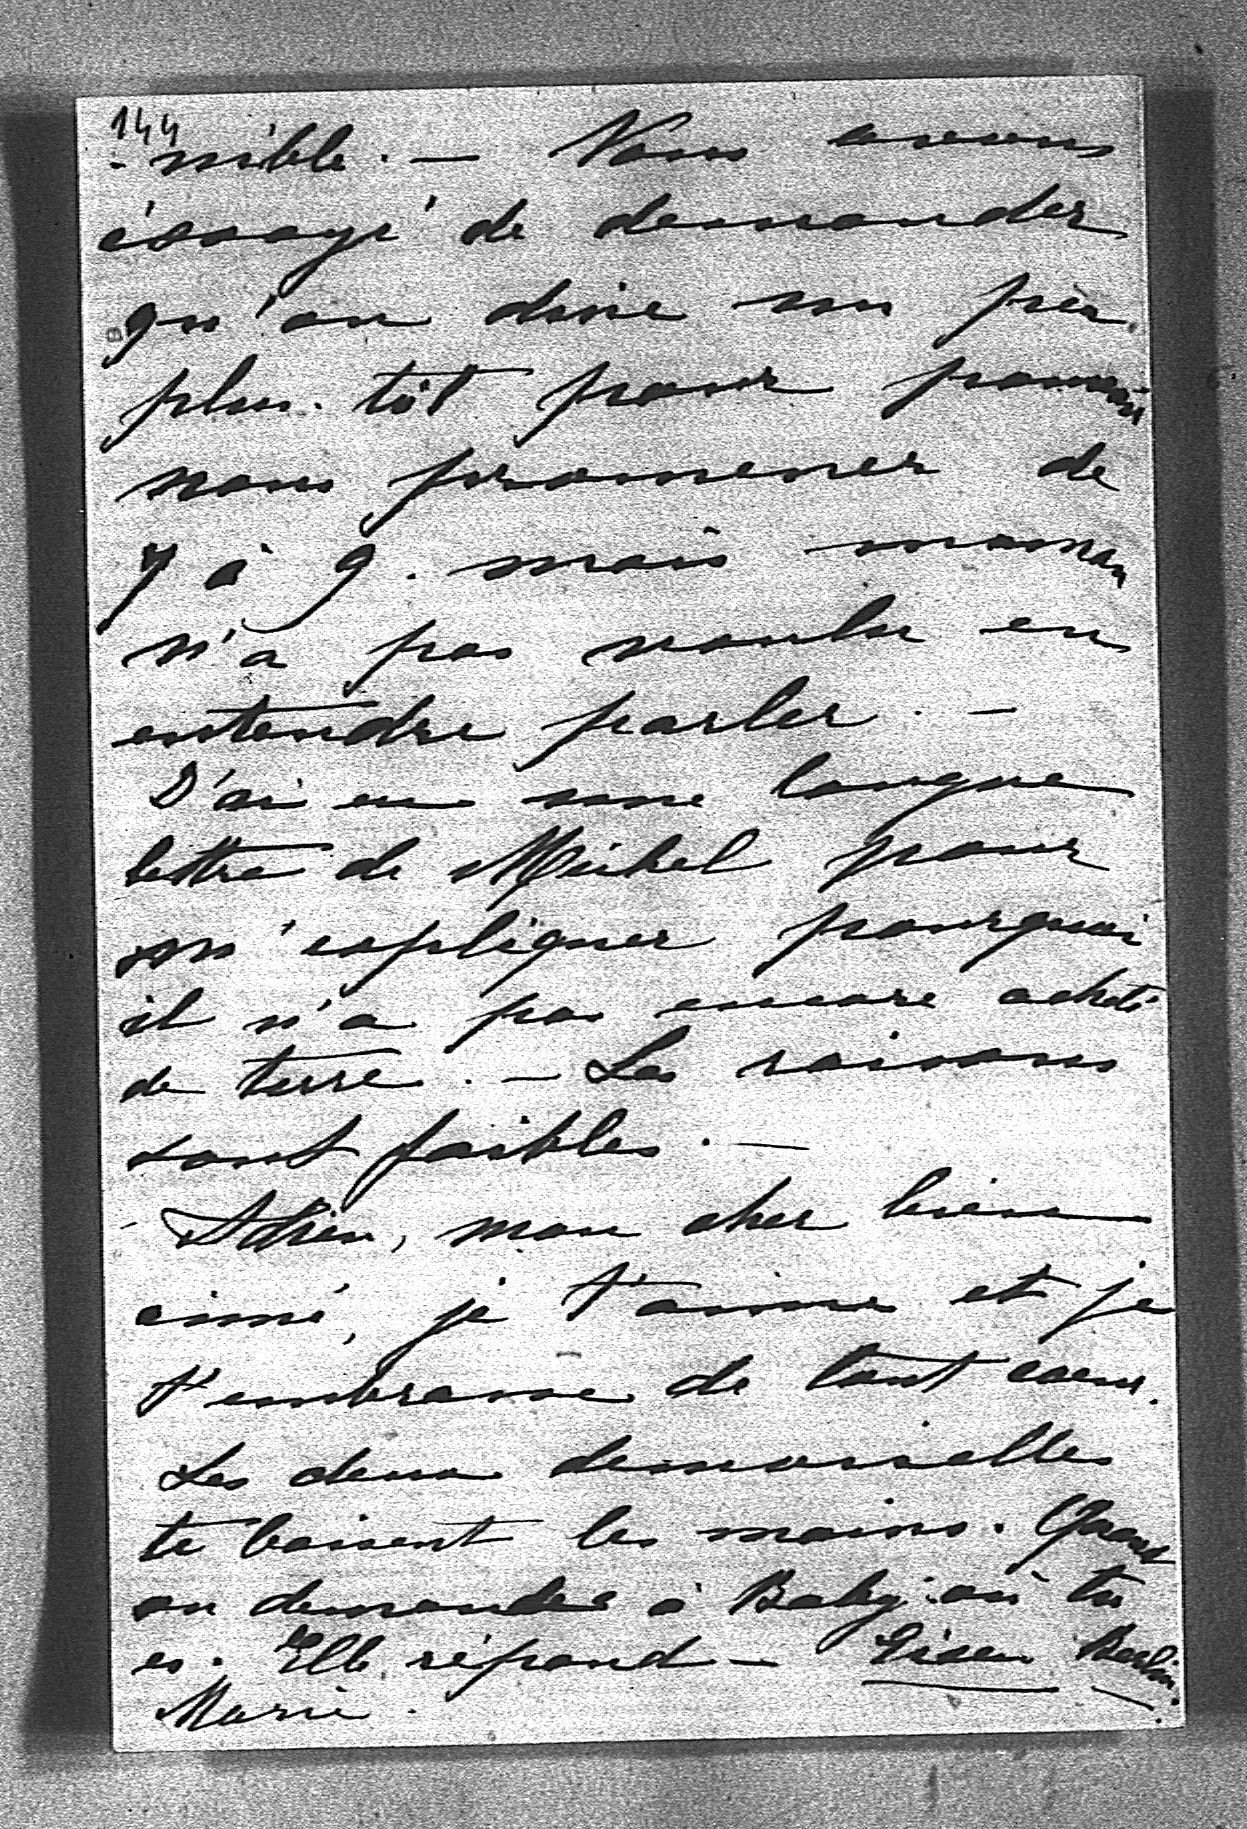 144
-nible. — Nous avons
éssayé de demander
qu'on dine un peu
plus tôt pour pouvoir
nous promener de
7 à 9. mais maman
n'a pas voulu en
entendre parler. —
J'ai eu une longue
lettre de Michel pour
m'expliquer pourquoi
il n'a pas encore acheté
de terre. — Les raisons
sont faibles. —
Adieu, mon cher bien
aimé, je t'aime et je
t'embrasse de tout coeur.
Les deux demoiselles
te baisent les mains. Quand
on demande à Baby où tu
es. Elle répond — Berlin.
Marie.